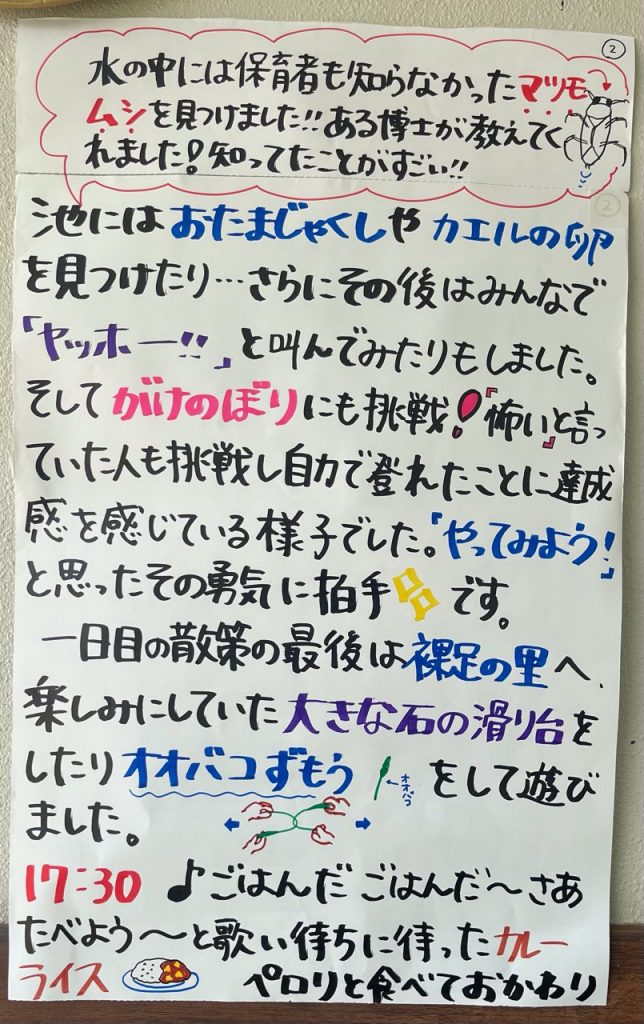 ②
水の中には保育者も知らなかったマツモ
ムシを見つけました!!ある博士が教えてく
れました!知ってたことがすごい!!
②
池にはおたまじゃくしやカエルの卵
を見つけたり…さらにその後はみんなで
「ヤッホー!!」と叫んでみたりもしました。
そしてがけのぼりにも挑戦!「怖い」と言っ
ていた人も挑戦し自力で登れたことに達成
感を感じている様子でした。「やってみよう!」
と思ったその勇気に拍手です。
一日目の散策の最後は裸足の里へ、
楽しみにしていた大きな石の滑り台を
したりオオバコずもう ←オオバコ をして遊び
ました。
17:30 ♪ごはんだごはんだ〜さあ
たべよう〜と歌い待ちに待ったカレー
ライス ペロリと食べておかわり